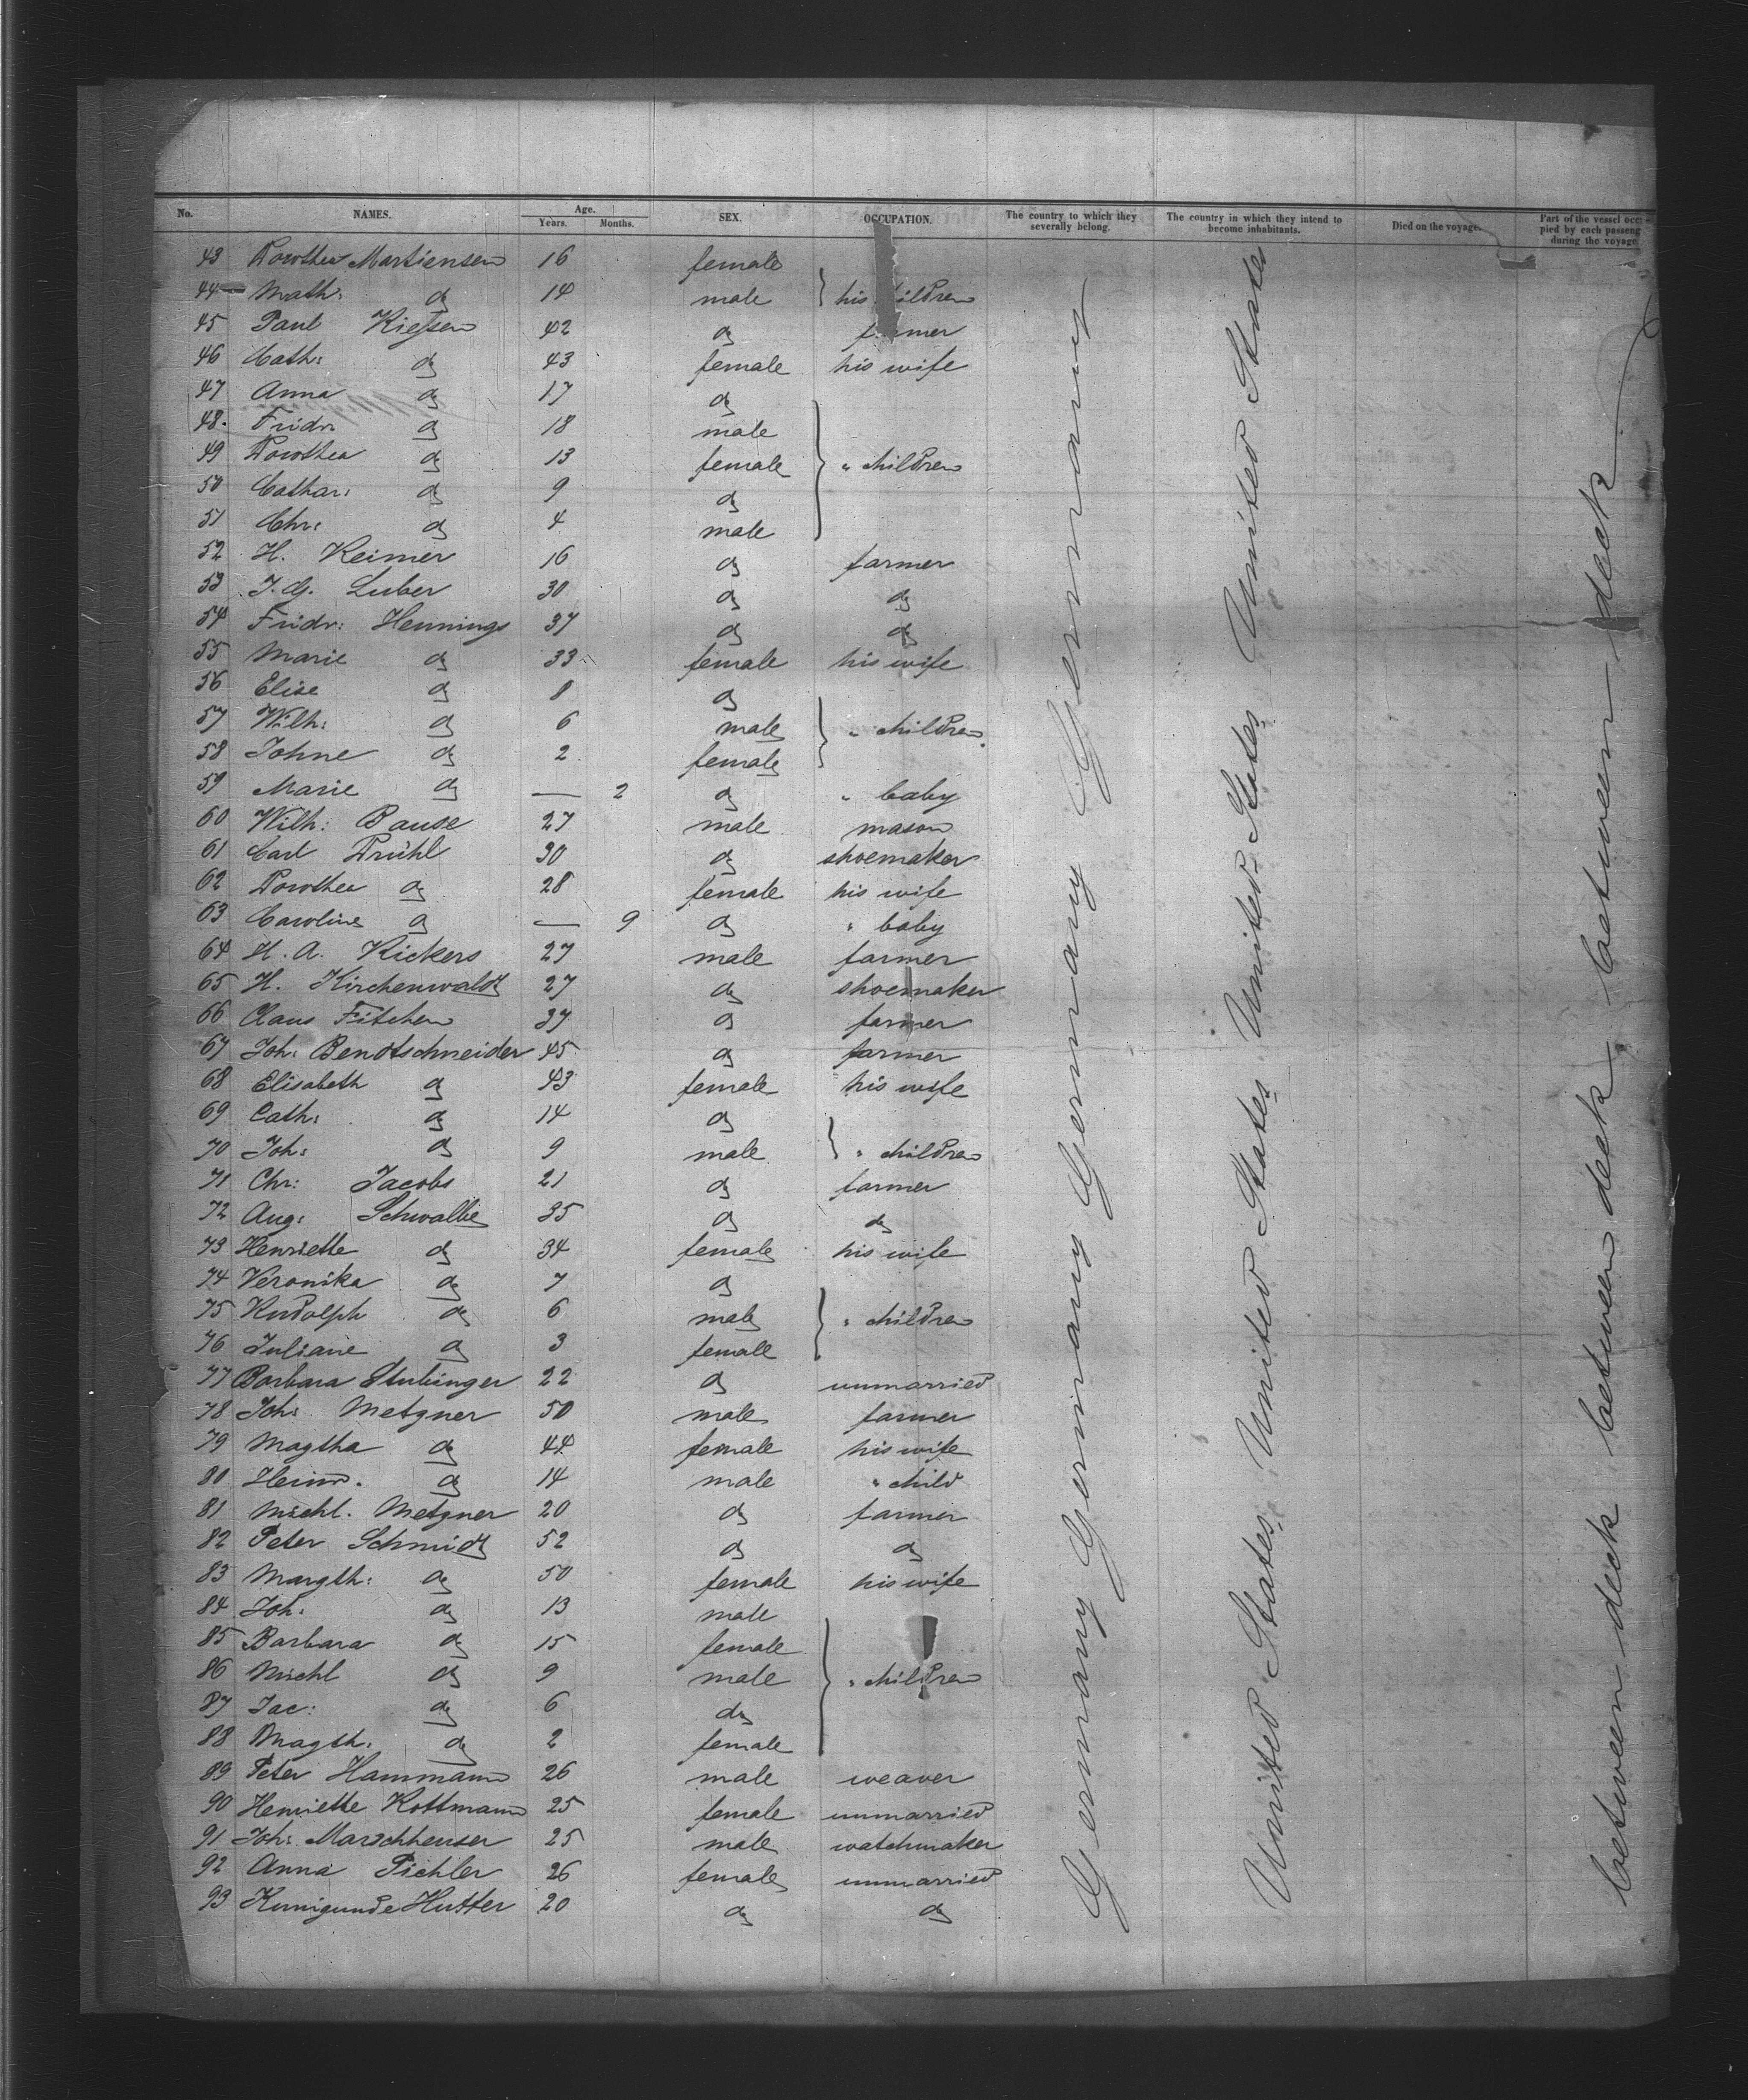 No. NAMES. Age. Years. Months. SEX. OCCUPATION. The country to which they severally belong. The country in which they intend to become inhabitants. Died on the voyage. Part of the vessel occupied by each passeng during the voyage
43 Dorothea Martiensen 16 female
44 Math: do 14 male his children
45 Paul Kiessen 42 do farmer
46 Cath: do 43 female his wife
47 Anna do 17 do
48. Fridr: do 18 male
49 Dorothea do 13 female " children
50 Cathar: do 9 do
51 Chr: do 4 male
52 H. Reimer 16 do farmer
53 J. G. Luber 30 do do
54 Fridr: Hennings 37 do do
55 Marie do 33 female his wife
56 Elise do 8 do
57 Wilh: do 6 male " children
58 Johne do 2 female
59 Marie do — 2 do " baby
60 Wilh: Bause 27 male mason
61 Carl Drühl 30 do shoemaker
62 Dorothea do 28 female his wife
63 Caroline do — 9 do " baby
64 H. A. Rickers 27 male farmer
65 H. Kirchenwaldt 27 do shoemaker
66 Claus Fitschen 37 do farmer
67 Joh: Bendtschneider 45 do farmer
68 Elisabeth do 43 female his wife
69 Cath: do 14 do
70 Joh: do 9 male " children
71 Chr: Jacobs 21 do farmer
72 Aug: Schwalbe 35 do do
73 Henriette do 34 female his wife
74 Veronika do 7 do
75 Rudolph do 6 male " children
76 Juliane do 3 female
77 Barbara Stubinger 22 do unmarried
78 Joh: Metzner 50 male farmer
79 Magtha do 44 female his wife
80 Heinr. do 14 male " child
81 Michl. Metzner 20 do farmer
82 Peter Schmidt 52 do do
83 Margth: do 50 female his wife
84 Joh: do 13 male
85 Barbara do 15 female
86 Michl do 9 male " children
87 Jac: do 6 do
88 Magth: do 2 female
89 Peter Hammann 26 male weaver
90 Henriette Kottmann 25 female unmarried
91 Joh: Marschheuser 25 male watchmaker
92 Anna Pichler 26 female unmarried
93 Kunigunde Hutter 20 do do
Germany Germany Germany Germany Germany
United States United States United States United States
between deck between deck between deck